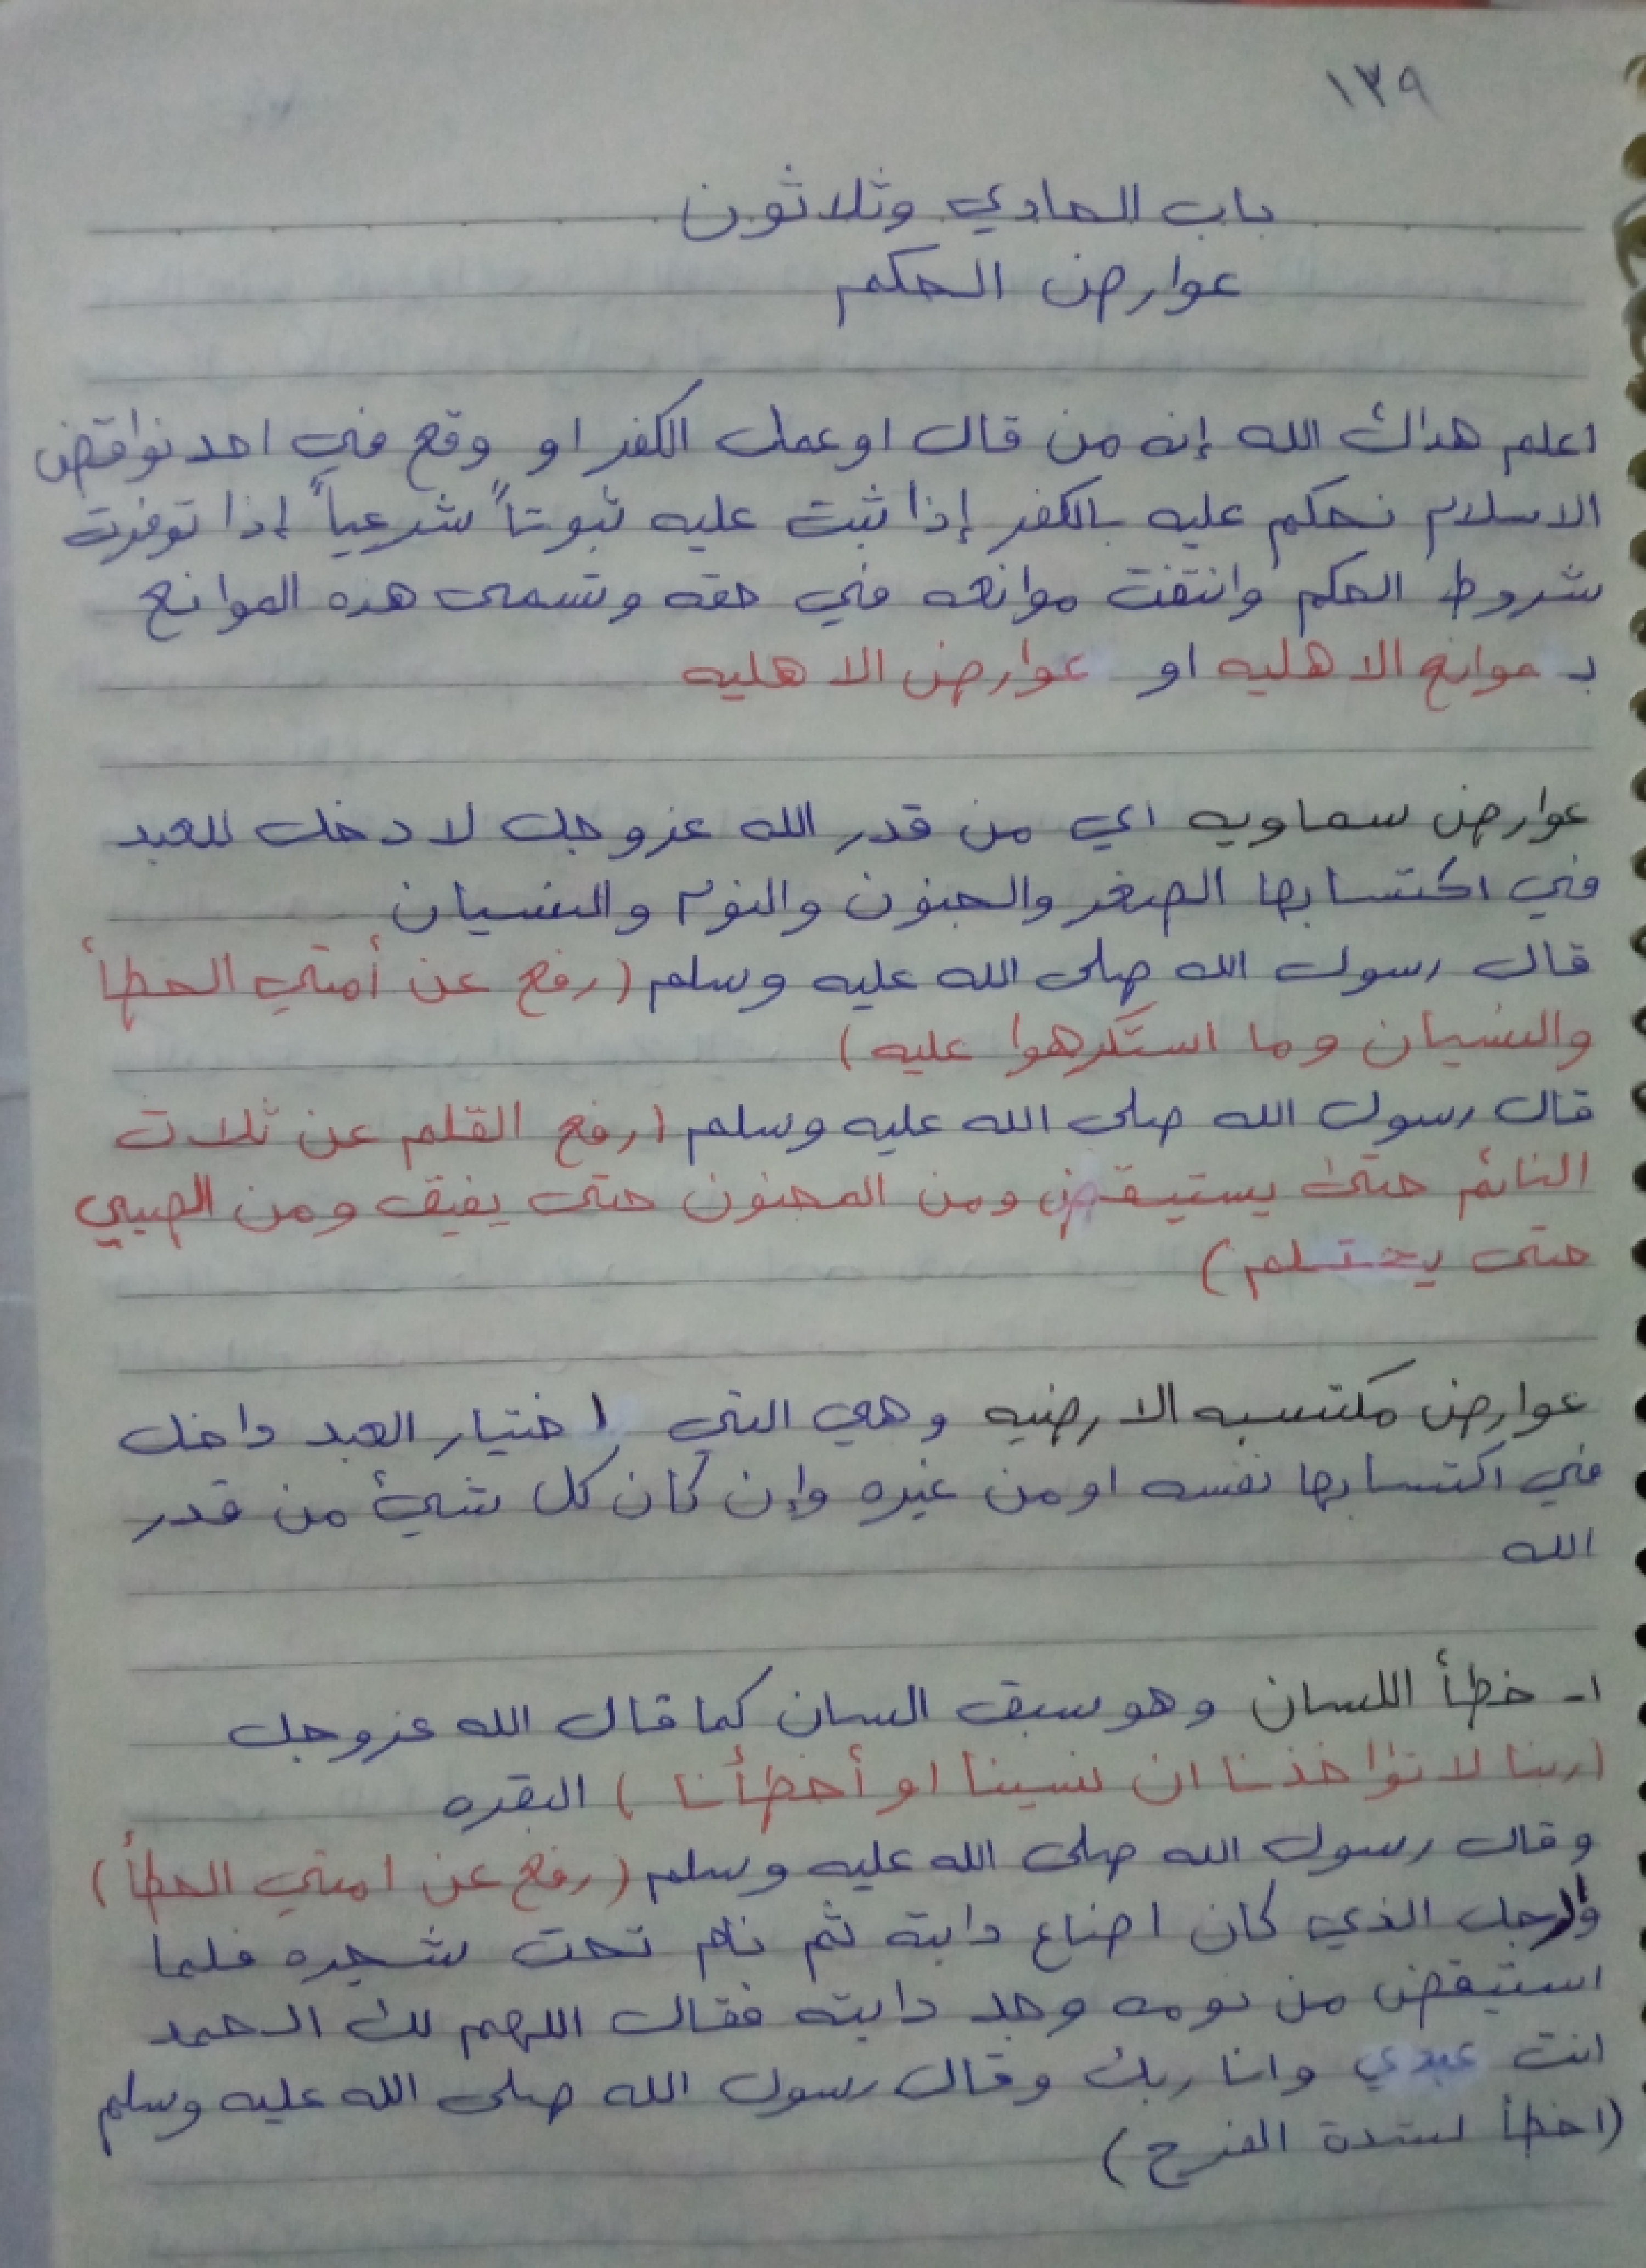 ١٣٩
باب الحادي وثلاثون
عوارض الحكم
اعلم هداك الله إنه من قال او عمل الكفر او وقع في احد نواقض
الاسلام نحكم عليه بالكفر إذا ثبت عليه ثبوتاً شرعياً إذا توفرت
شروط الحكم وانتفت موانعه في حقه وتسمى هذه الموانع
بـ موانع الاهليه او عوارض الاهليه
عوارض سماويه اي من قدر الله عزوجل لا دخل للعبد
في اكتسابها الصغر والجنون والنوم والنسيان
قال رسول الله صلى الله عليه وسلم (رفع عن أمتي الخطأ
والنسيان وما استكرهوا عليه)
قال رسول الله صلى الله عليه وسلم (رفع القلم عن ثلاث
النائم حتى يستيقض ومن المجنون حتى يفيق ومن الصبي
حتى يحتلم)
عوارض مكتسبه الارضيه وهي التي اختيار العبد داخل
في اكتسابها نفسه او من غيره وإن كان كل شيئ من قدر
الله
١- خطأ اللسان وهو سبق السان كما قال الله عزوجل
(ربنا لا تؤاخذنا ان نسينا او أخطأنا) البقره
وقال رسول الله صلى الله عليه وسلم (رفع عن امتي الخطأ)
والرجل الذي كان اضاع دابته ثم نام تحت شجره فلما
استيقض من نومه وجد دابته فقال اللهم لك الحمد
انت عبدي وانا ربك وقال رسول الله صلى الله عليه وسلم
(اخطأ لشدة الفرح)